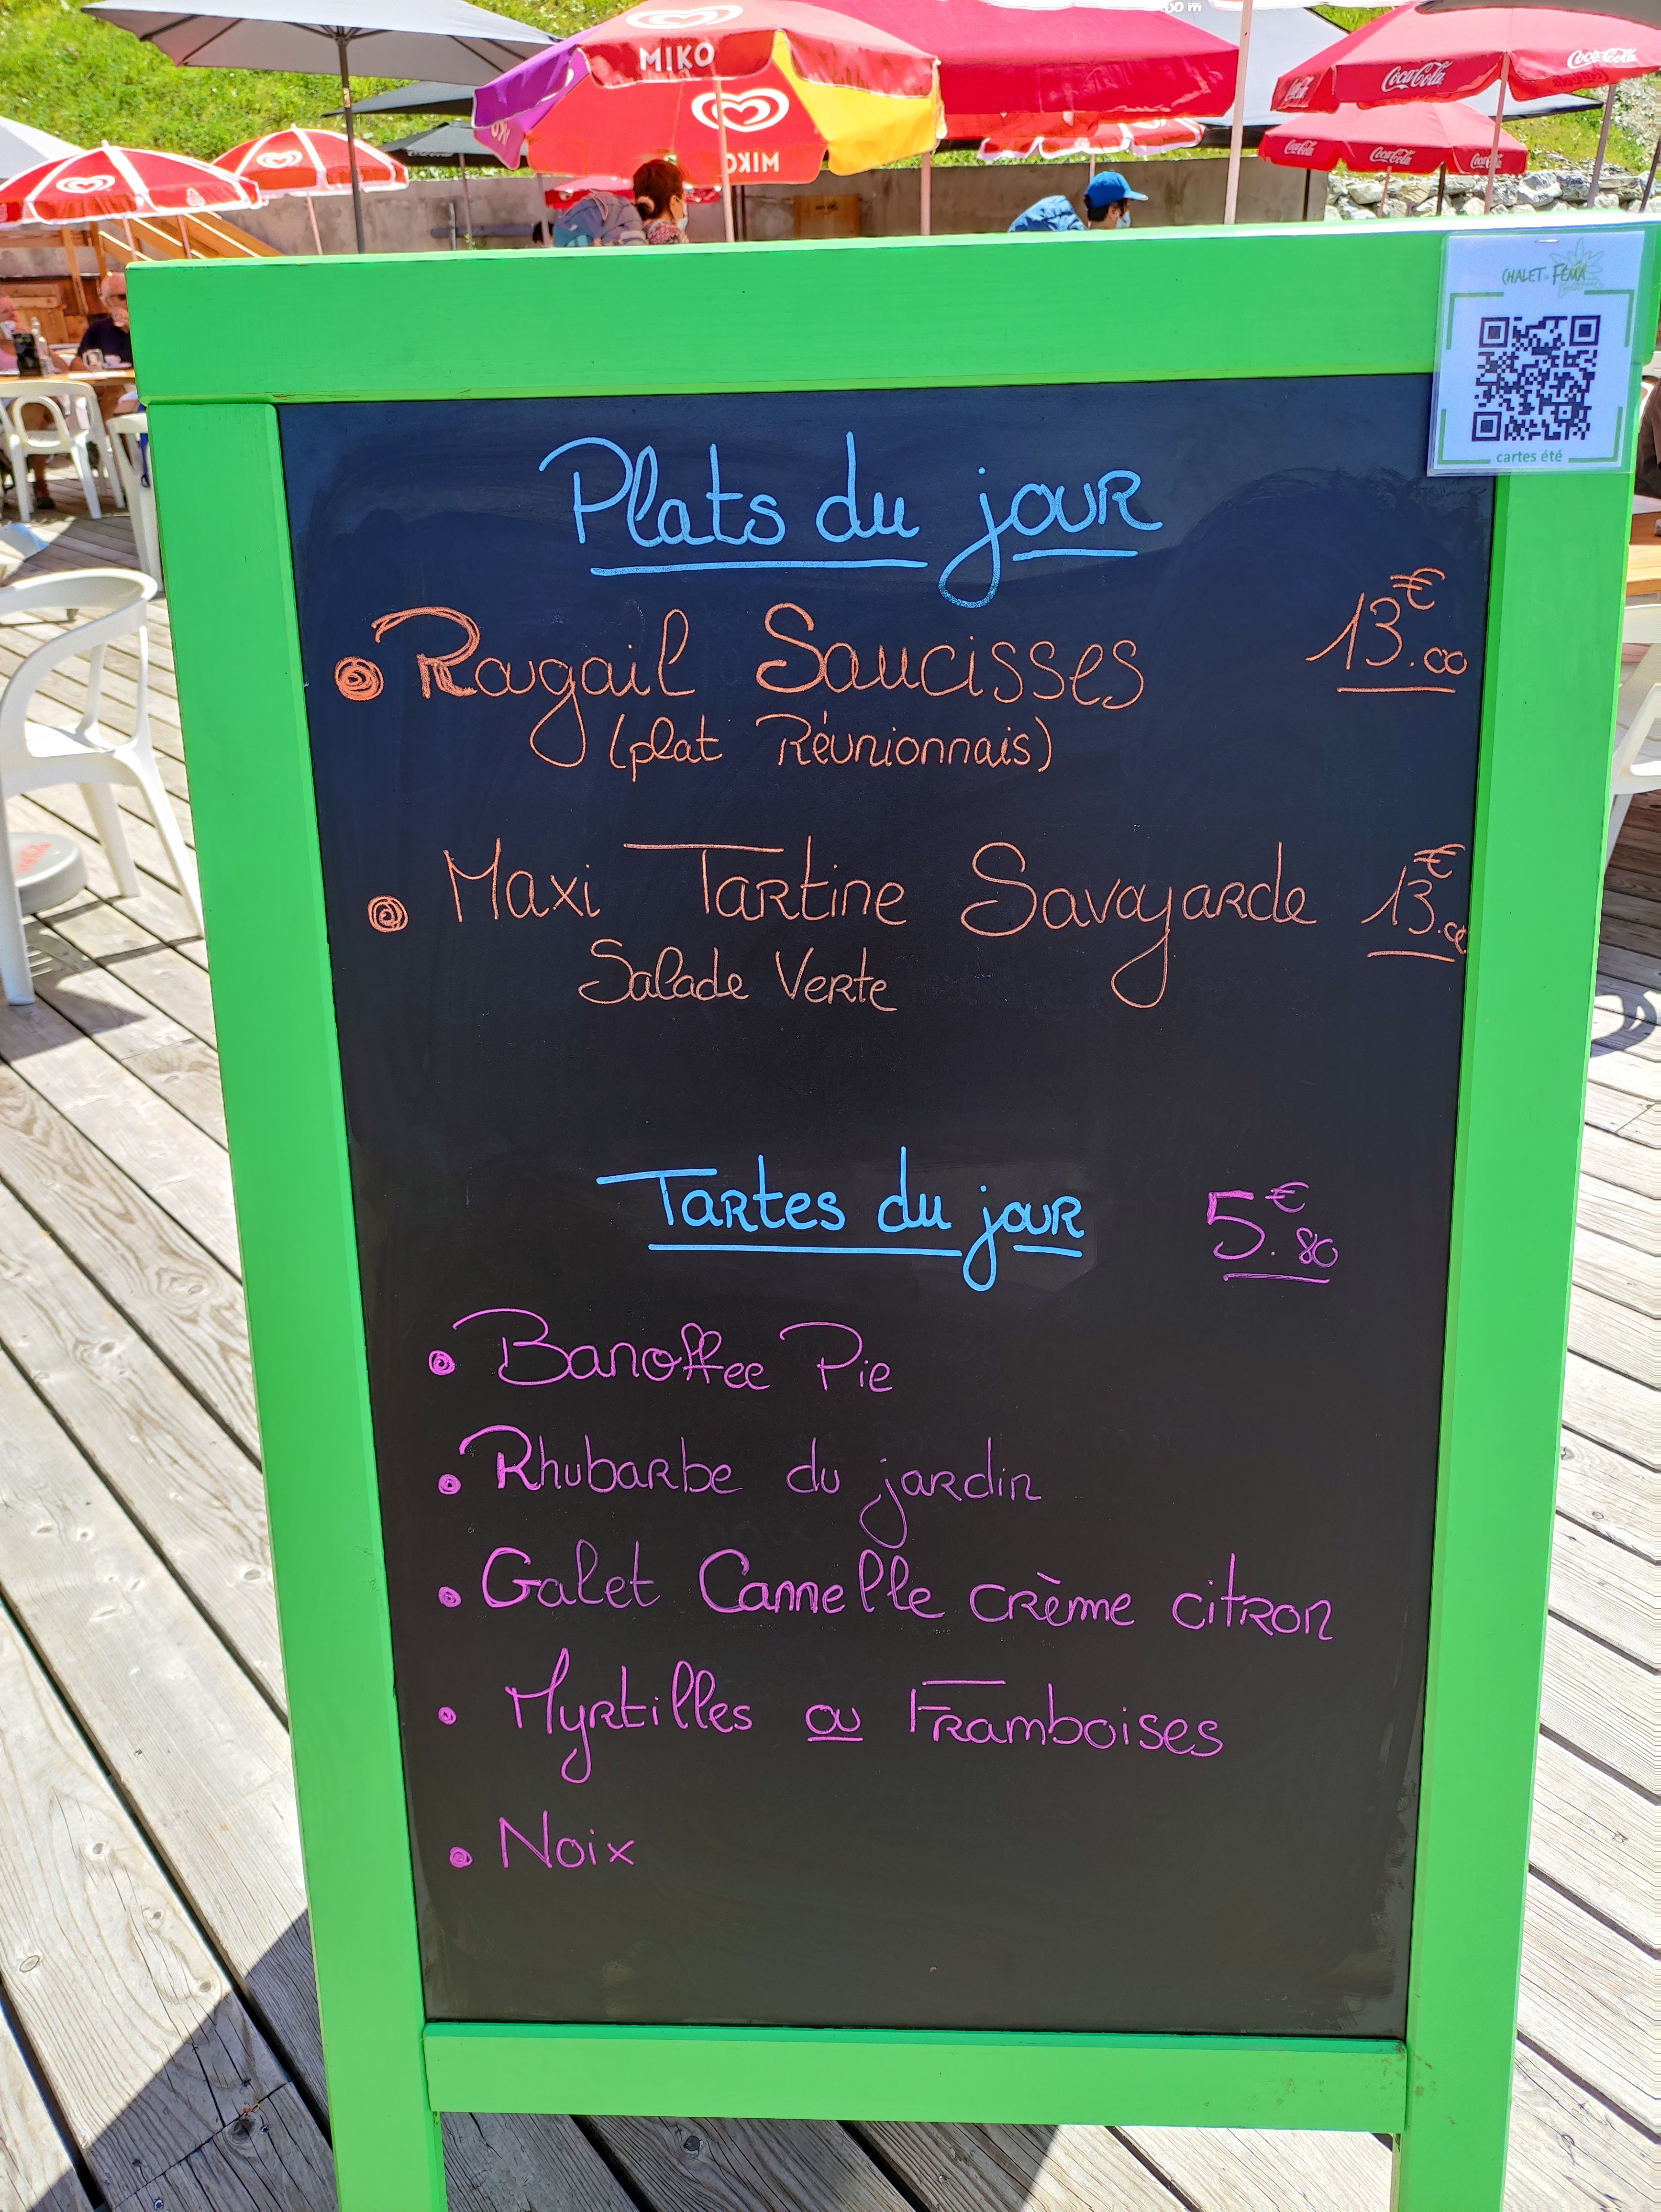 MIKO
MIKO
Coca-Cola
Coca-Cola
Coca-Cola
Coca-Cola
Coca-Cola
CHALET FEMA
cartes été
Plats du jour
Rougail Saucisses 13.00€
(plat Réunionnais)
Maxi Tartine Savoyarde 13.00€
Salade Verte
Tartes du jour 5.80€
Banoffee Pie
Rhubarbe du jardin
Galet Cannelle crème citron
Myrtilles ou Framboises
Noix